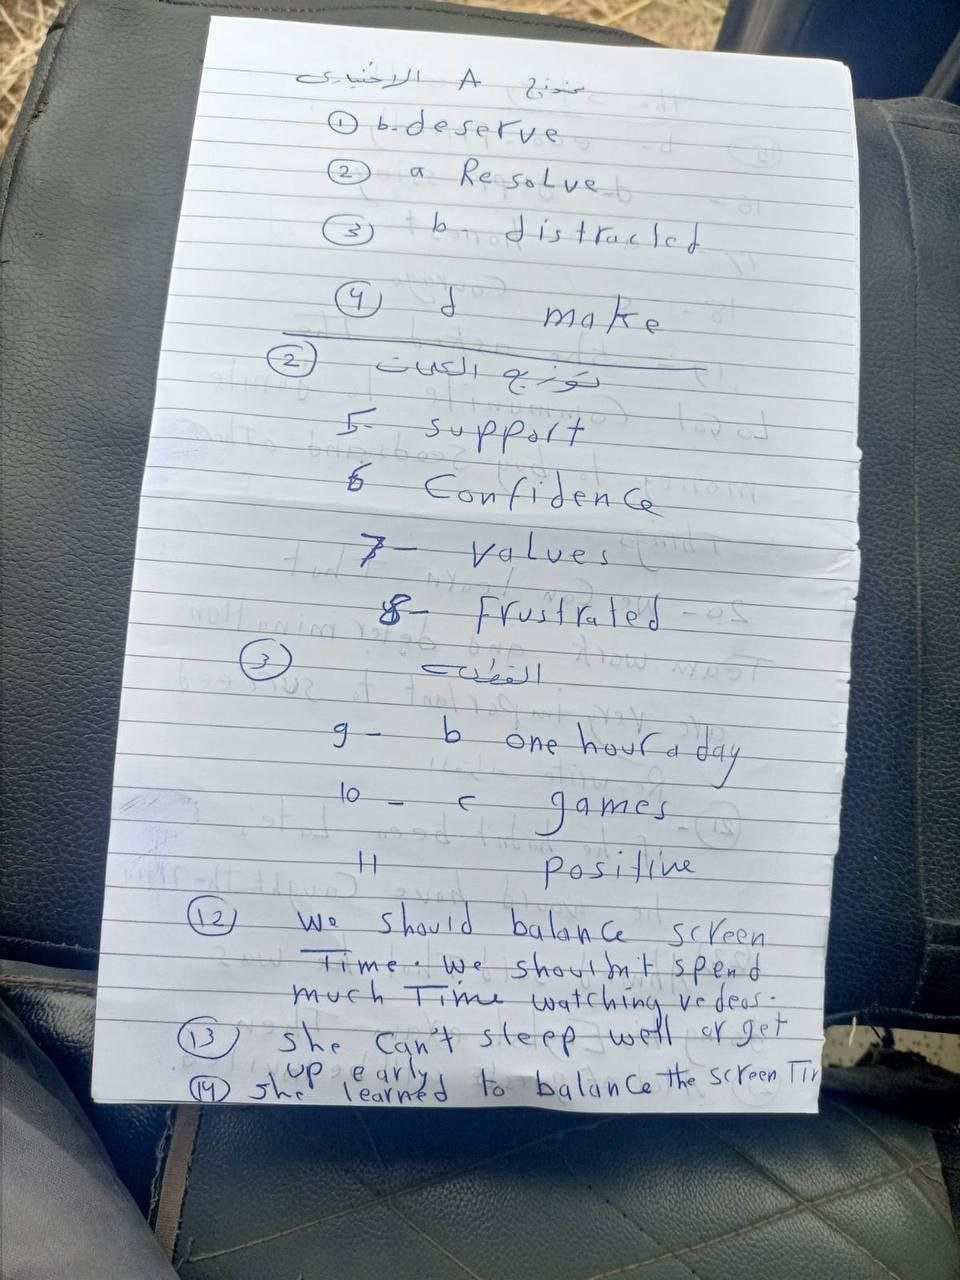 نموذج A الاختياري
① b. deserve
② a Resolve
③ b distracted
④ d make
②
5- support
6 Confidence
7- values
8- Frustrated
③ القطعت
9- b one hour a day
10 - c games
11 positive
⑫ We should balance screen
Time. We shouldnt spend
much Time watching vedeos.
⑬ she can't sleep well or get
up early
⑭ she learned to balance the screen